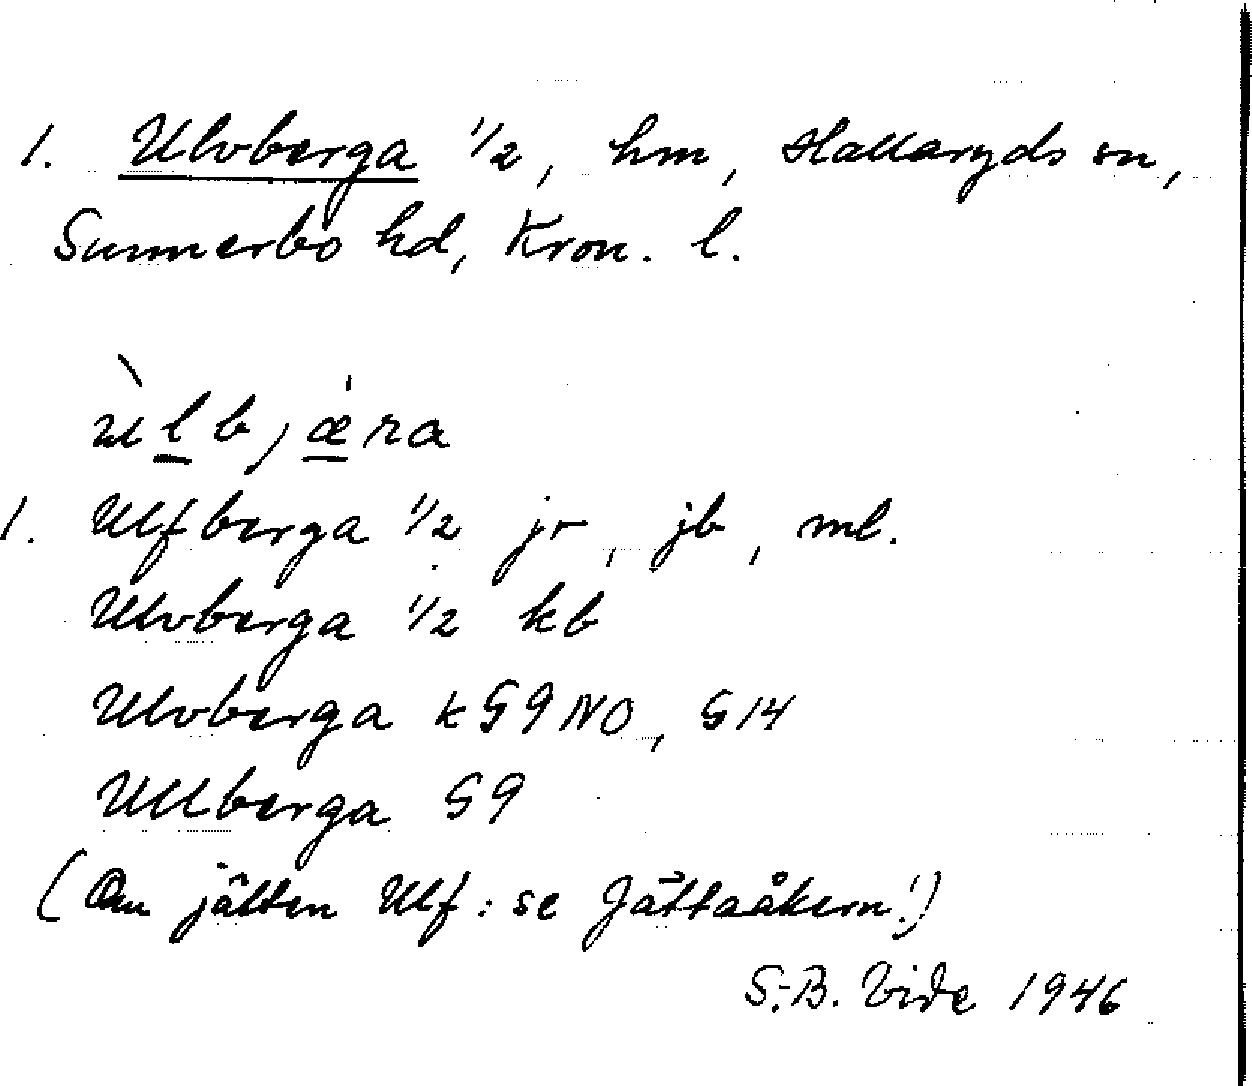 1. Ulvberga 1/2, hm, Hallaryds sn,
Sunnerbo hd, Kron. l.
ùlbjæra
1. Ulfberga 1/2 jr, jb, ml.
Ulvberga 1/2 kb
Ulvberga k G9NO, G14
Ullberga G9
(Om jätten Ulf: se Jättaåkern!)
S.-B. Vide 1946